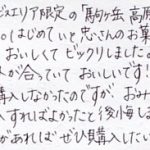 ビスエリア限定の「駒ヶ岳 高原
。はじめていと忠さんのお菓
おいしくて ビックリしました。
が合っていて おいしいです!
購入しなかったのですが おみ
入すればよかったと後悔しる
があれば ぜひ購入したい